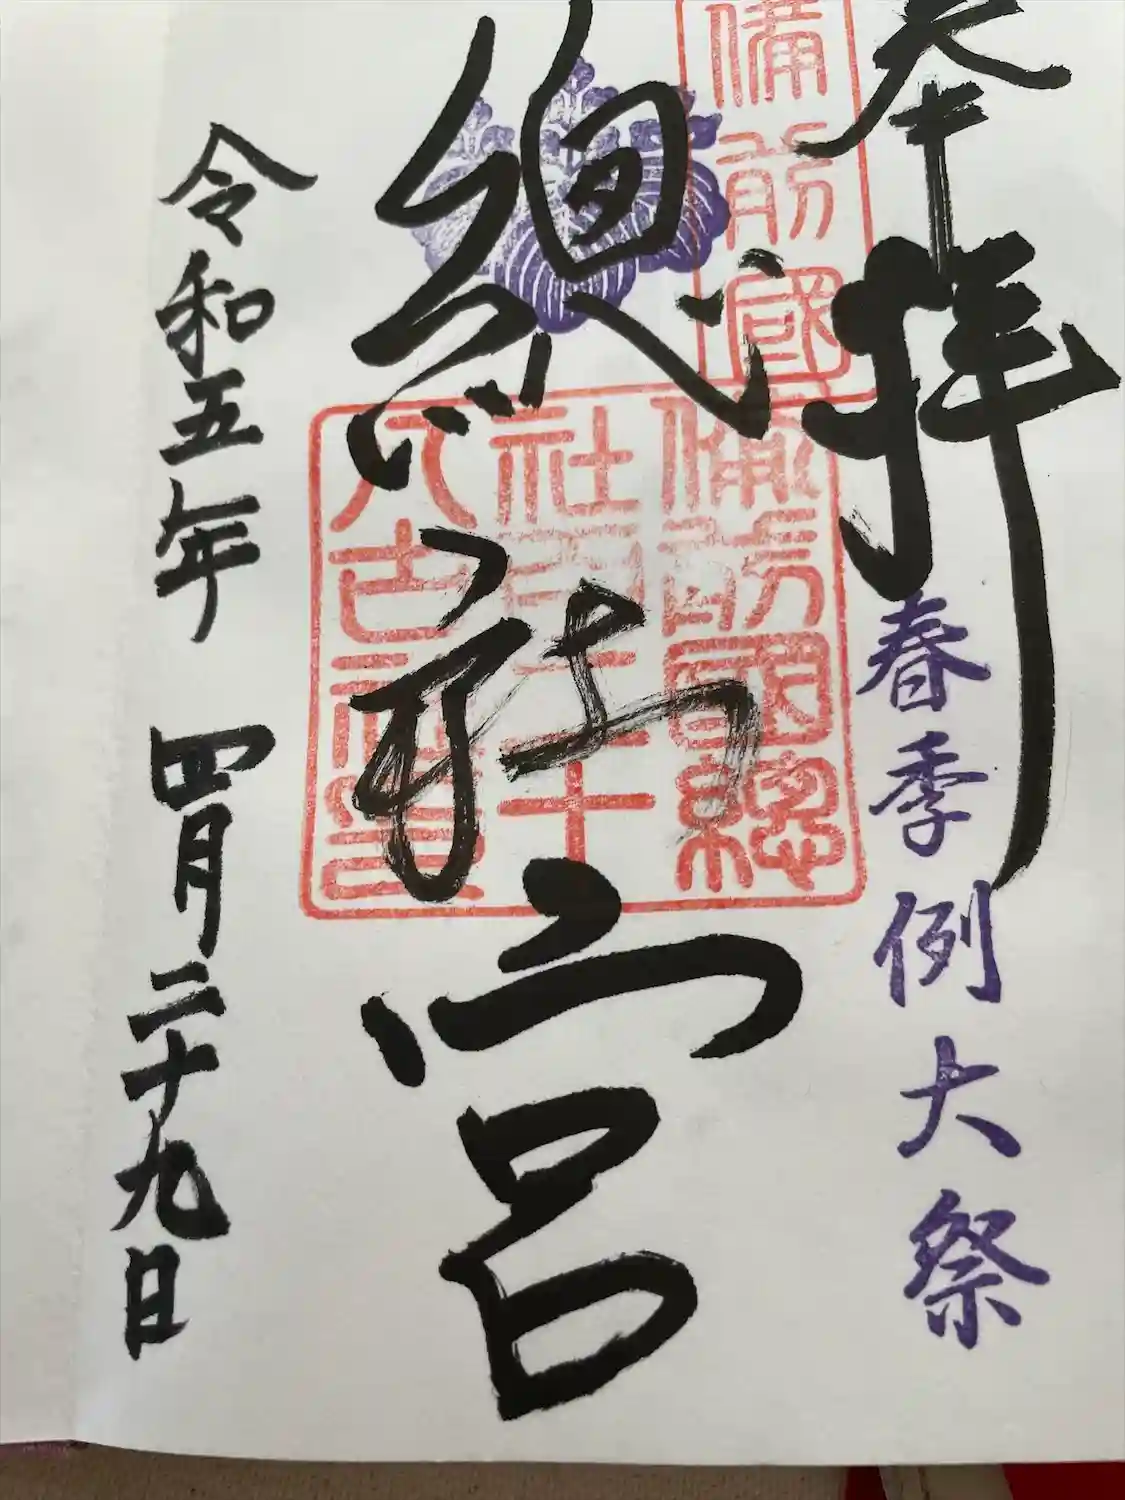 奉拝
春季例大祭
備前國
總社宮
備前國總
社百二十
八古神璽
令和五年 四月二十九日